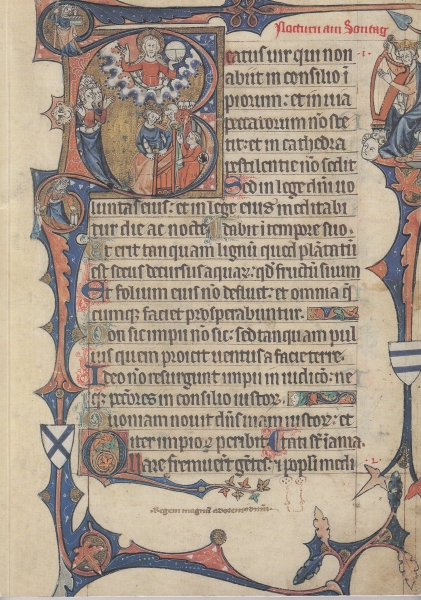 Nocturn am Sontag
Beatus uir qui non .i.
abijt in consilio ī
piorum: et in uia
peccatorum nō ste
tit: et in cathedra
pestilentie nō sedit
Sed in lege dn̄i uo
luntas eius: et in lege eius meditabi
tur die ac nocte
dabit ī tempore suo.
Et erit tanquam lignū quod plātatū
est secus decursus aquaꝝ: qd̓ fructū suum
Et folium eius nō defluet: et omnia q̄
cumqꝫ faciet prosperabuntur.
Non sic impii nō sic: sed tanquam pul
uis quem proicit uentus a facie terre.
Ideo nō resurgunt impii in iudicō: ne
qꝫ pctōres in consilio iustoꝝ.
Quoniam nouit dn̄s uiam iustoꝝ: et
iter impioꝝ peribit.
Quare fremuert̄ gētes: ⁊ popl̓i medi
Regem magnū adoremus dn̄m.